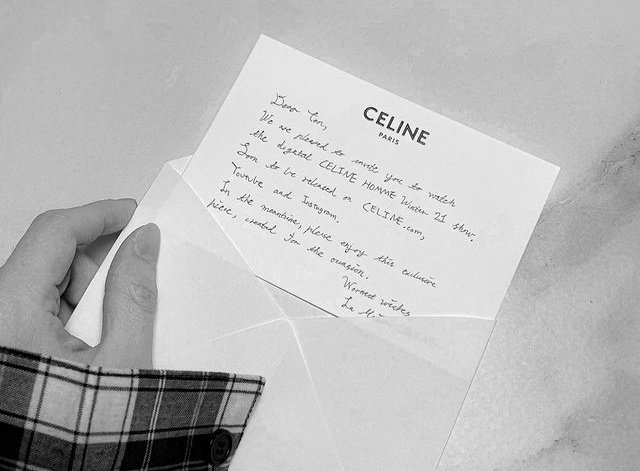 CELINE
PARIS
Dear
We are pleased to invite you to watch
the digital CELINE HOMME Winter 21 show.
Soon to be released on CELINE.com,
Youtube and Instagram.
In the meantime, please enjoy this exclusive
piece, created for the occasion.
Warmest wishes